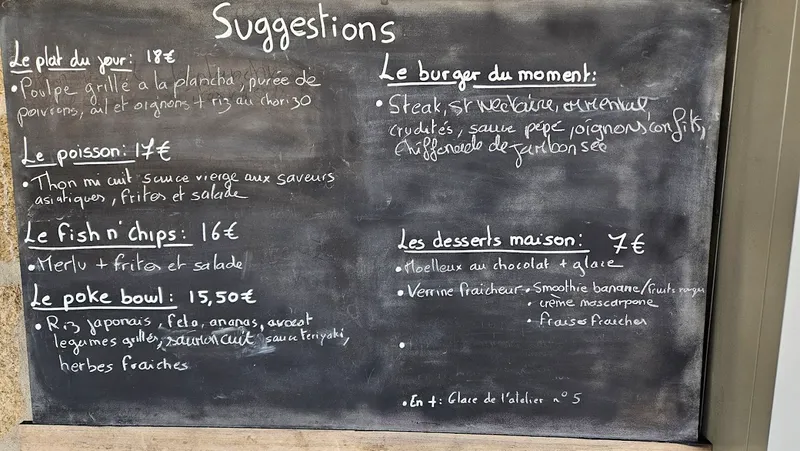 Suggestions
Le plat du jour: 18€
• Poulpe grillé a la plancha, purée de
poivrons, ail et oignons + riz au chorizo
Le poisson: 17€
• Thon mi cuit sauce vierge aux saveurs
asiatiques, frites et salade
Le fish n' chips: 16€
• Merlu + frites et salade
Le poke bowl: 15,50€
• Riz japonais, feta, ananas, avocat
legumes grillés, saumon cuit, sauce teriyaki,
herbes fraiches
Le burger du moment:
• Steak, St Nectaire, emmental,
crudités, sauce pépé, oignons confits,
chiffonade de jambon sec
Les desserts maison: 7€
• Moelleux au chocolat + glace
• Verrine fraicheur • Smoothie banane/fruits rouges
• crème mascarpone
• Fraises fraiches
•
• En +: Glace de l'atelier n°5